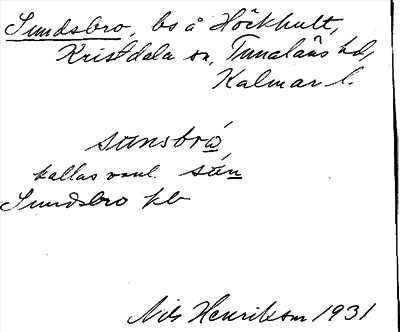 Sundsbro, bs å Höckhult,
Kristdala sn, Tunaläns hd,
Kalmar l.
sunsbro,
kallas vanl. sun
Sundsbro kb
Nils Henrikson 1931